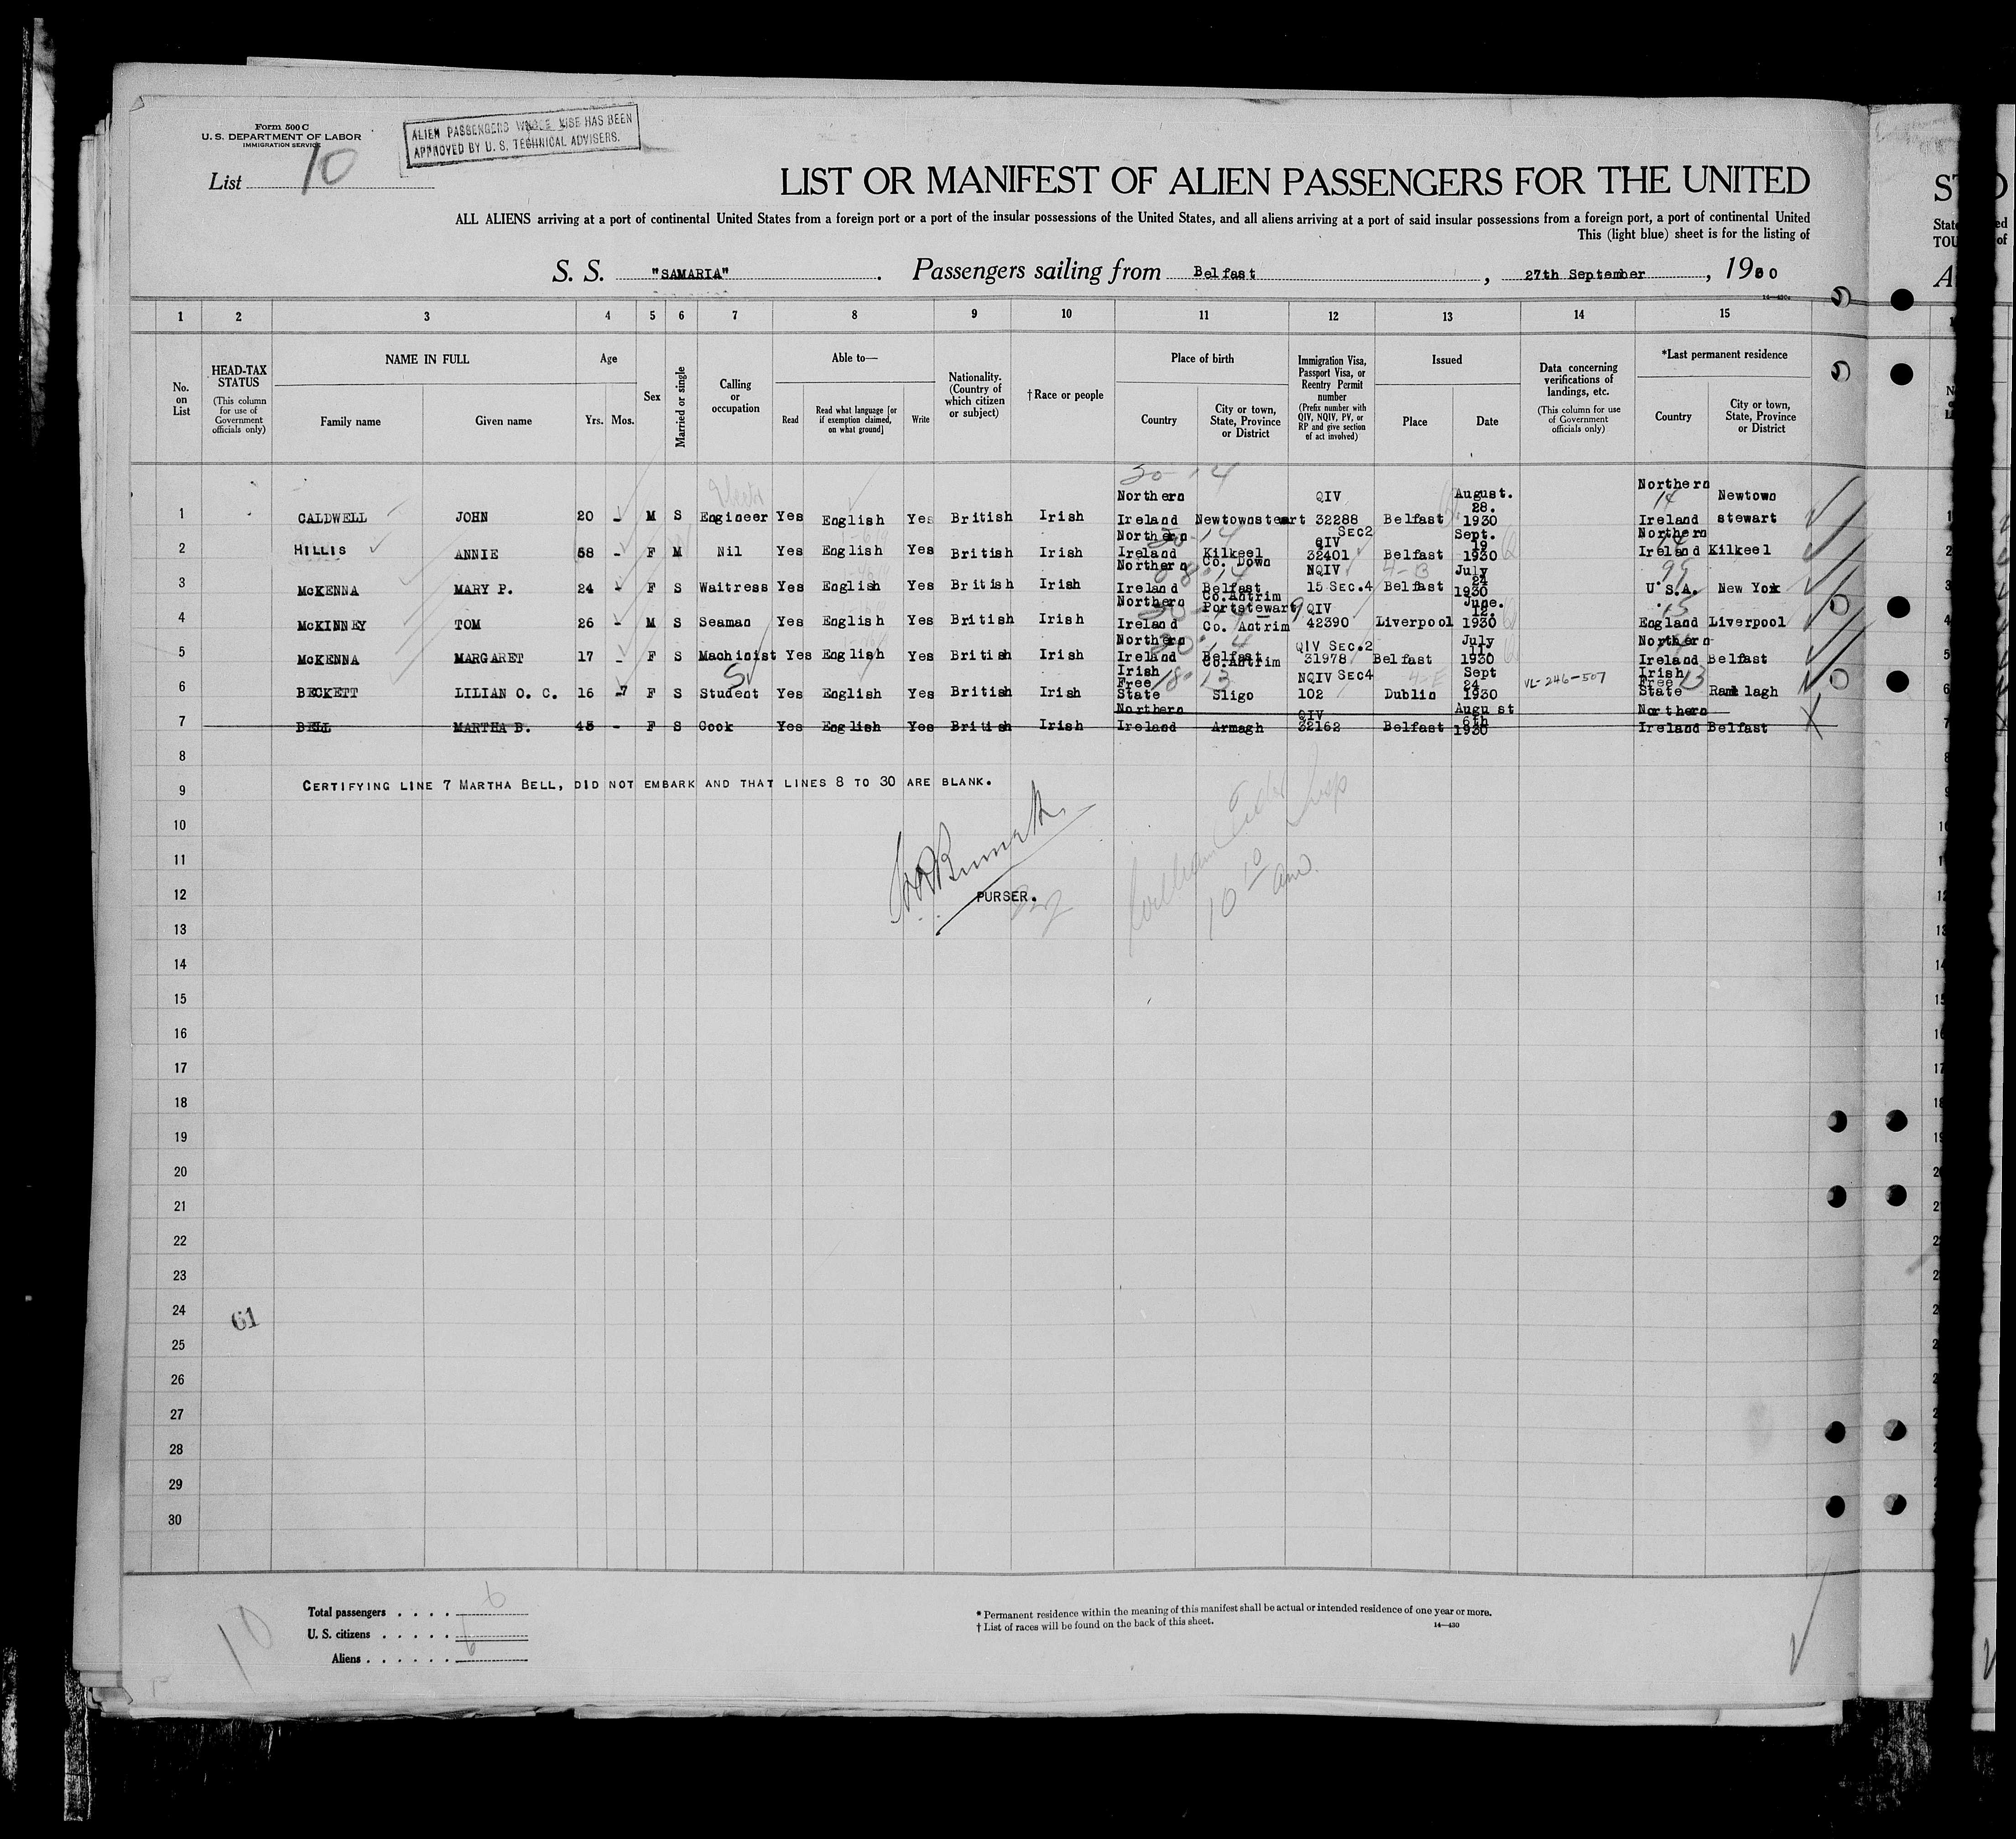 Form 500 C
U. S. DEPARTMENT OF LABOR
IMMIGRATION SERVICE
ALIEN PASSENGERS WHOSE VISE HAS BEEN
APPROVED BY U. S. TECHNICAL ADVISERS.
List 10
LIST OR MANIFEST OF ALIEN PASSENGERS FOR THE UNITED
ALL ALIENS arriving at a port of continental United States from a foreign port or a port of the insular possessions of the United States, and all aliens arriving at a port of said insular possessions from a foreign port, a port of continental United
This (light blue) sheet is for the listing of
S. S. "SAMARIA". Passengers sailing from Belfast, 27th September, 1930
1 2 3 4 5 6 7 8 9 10 11 12 13 14 15
No. on List
HEAD-TAX STATUS (This column for use of Government officials only)
NAME IN FULL
Family name Given name
Age
Yrs. Mos.
Sex
Married or single
Calling or occupation
Able to—
Read Read what language [or if exemption claimed, on what ground] Write
Nationality. (Country of which citizen or subject)
†Race or people
Place of birth
Country City or town, State, Province or District
Immigration Visa, Passport Visa, or Reentry Permit number (Prefix number with QIV, NQIV, PV, or RP and give section of act involved)
Issued
Place Date
Data concerning verifications of landings, etc. (This column for use of Government officials only)
*Last permanent residence
Country City or town, State, Province or District
1 CALDWELL JOHN 20 - M S Engineer Yes English Yes British Irish Northern Ireland Newtownstewart QIV 32288 Belfast August. 28. 1930 Northern Ireland Newtown stewart
2 HILLIS ANNIE 58 - F M Nil Yes English Yes British Irish Northern Ireland Kilkeel Co. Down SEC2 QIV 32401 Belfast Sept. 19 1930 Northern Ireland Kilkeel
3 McKENNA MARY P. 24 - F S Waitress Yes English Yes British Irish Northern Ireland Belfast Co.Antrim NQIV 15 SEC.4 Belfast July 24 1930 U.S.A. New York
4 McKINNEY TOM 26 - M S Seaman Yes English Yes British Irish Northern Ireland Portstewart Co. Antrim QIV 42390 Liverpool June. 12. 1930 England Liverpool
5 McKENNA MARGARET 17 - F S Machinist Yes English Yes British Irish Northern Ireland Belfast Co.Antrim QIV SEC.2 31978 Belfast July 11. 1930 Northern Ireland Belfast
6 BECKETT LILIAN O. C. 16 7 F S Student Yes English Yes British Irish Irish Free State Sligo NQIV SEC4 102 Dublin Sept 24. 1930 VL-246-507 Irish Free State Ranelagh
7 BELL MARTHA B. 45 - F S Cook Yes English Yes British Irish Northern Ireland Armagh QIV 32162 Belfast August 6th 1930 Northern Ireland Belfast
8
9 CERTIFYING LINE 7 MARTHA BELL, DID NOT EMBARK AND THAT LINES 8 TO 30 ARE BLANK.
10
11
12 PURSER.
13
14
15
16
17
18
19
20
21
22
23
24
61
25
26
27
28
29
30
Total passengers . . . . 6
U. S. citizens . . . . .
Aliens . . . . . . 6
10
* Permanent residence within the meaning of this manifest shall be actual or intended residence of one year or more.
† List of races will be found on the back of this sheet.
14—430